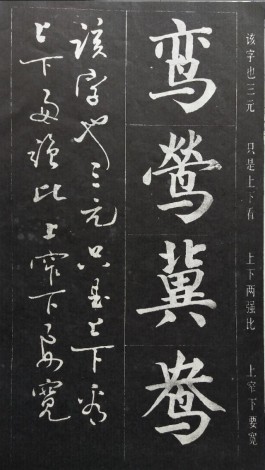 该字也三元 只是上下看 上下两强比 上窄下要宽
鸾
莺
冀
鸯
该字也三元只是上下看
上下两强比上窄下要宽